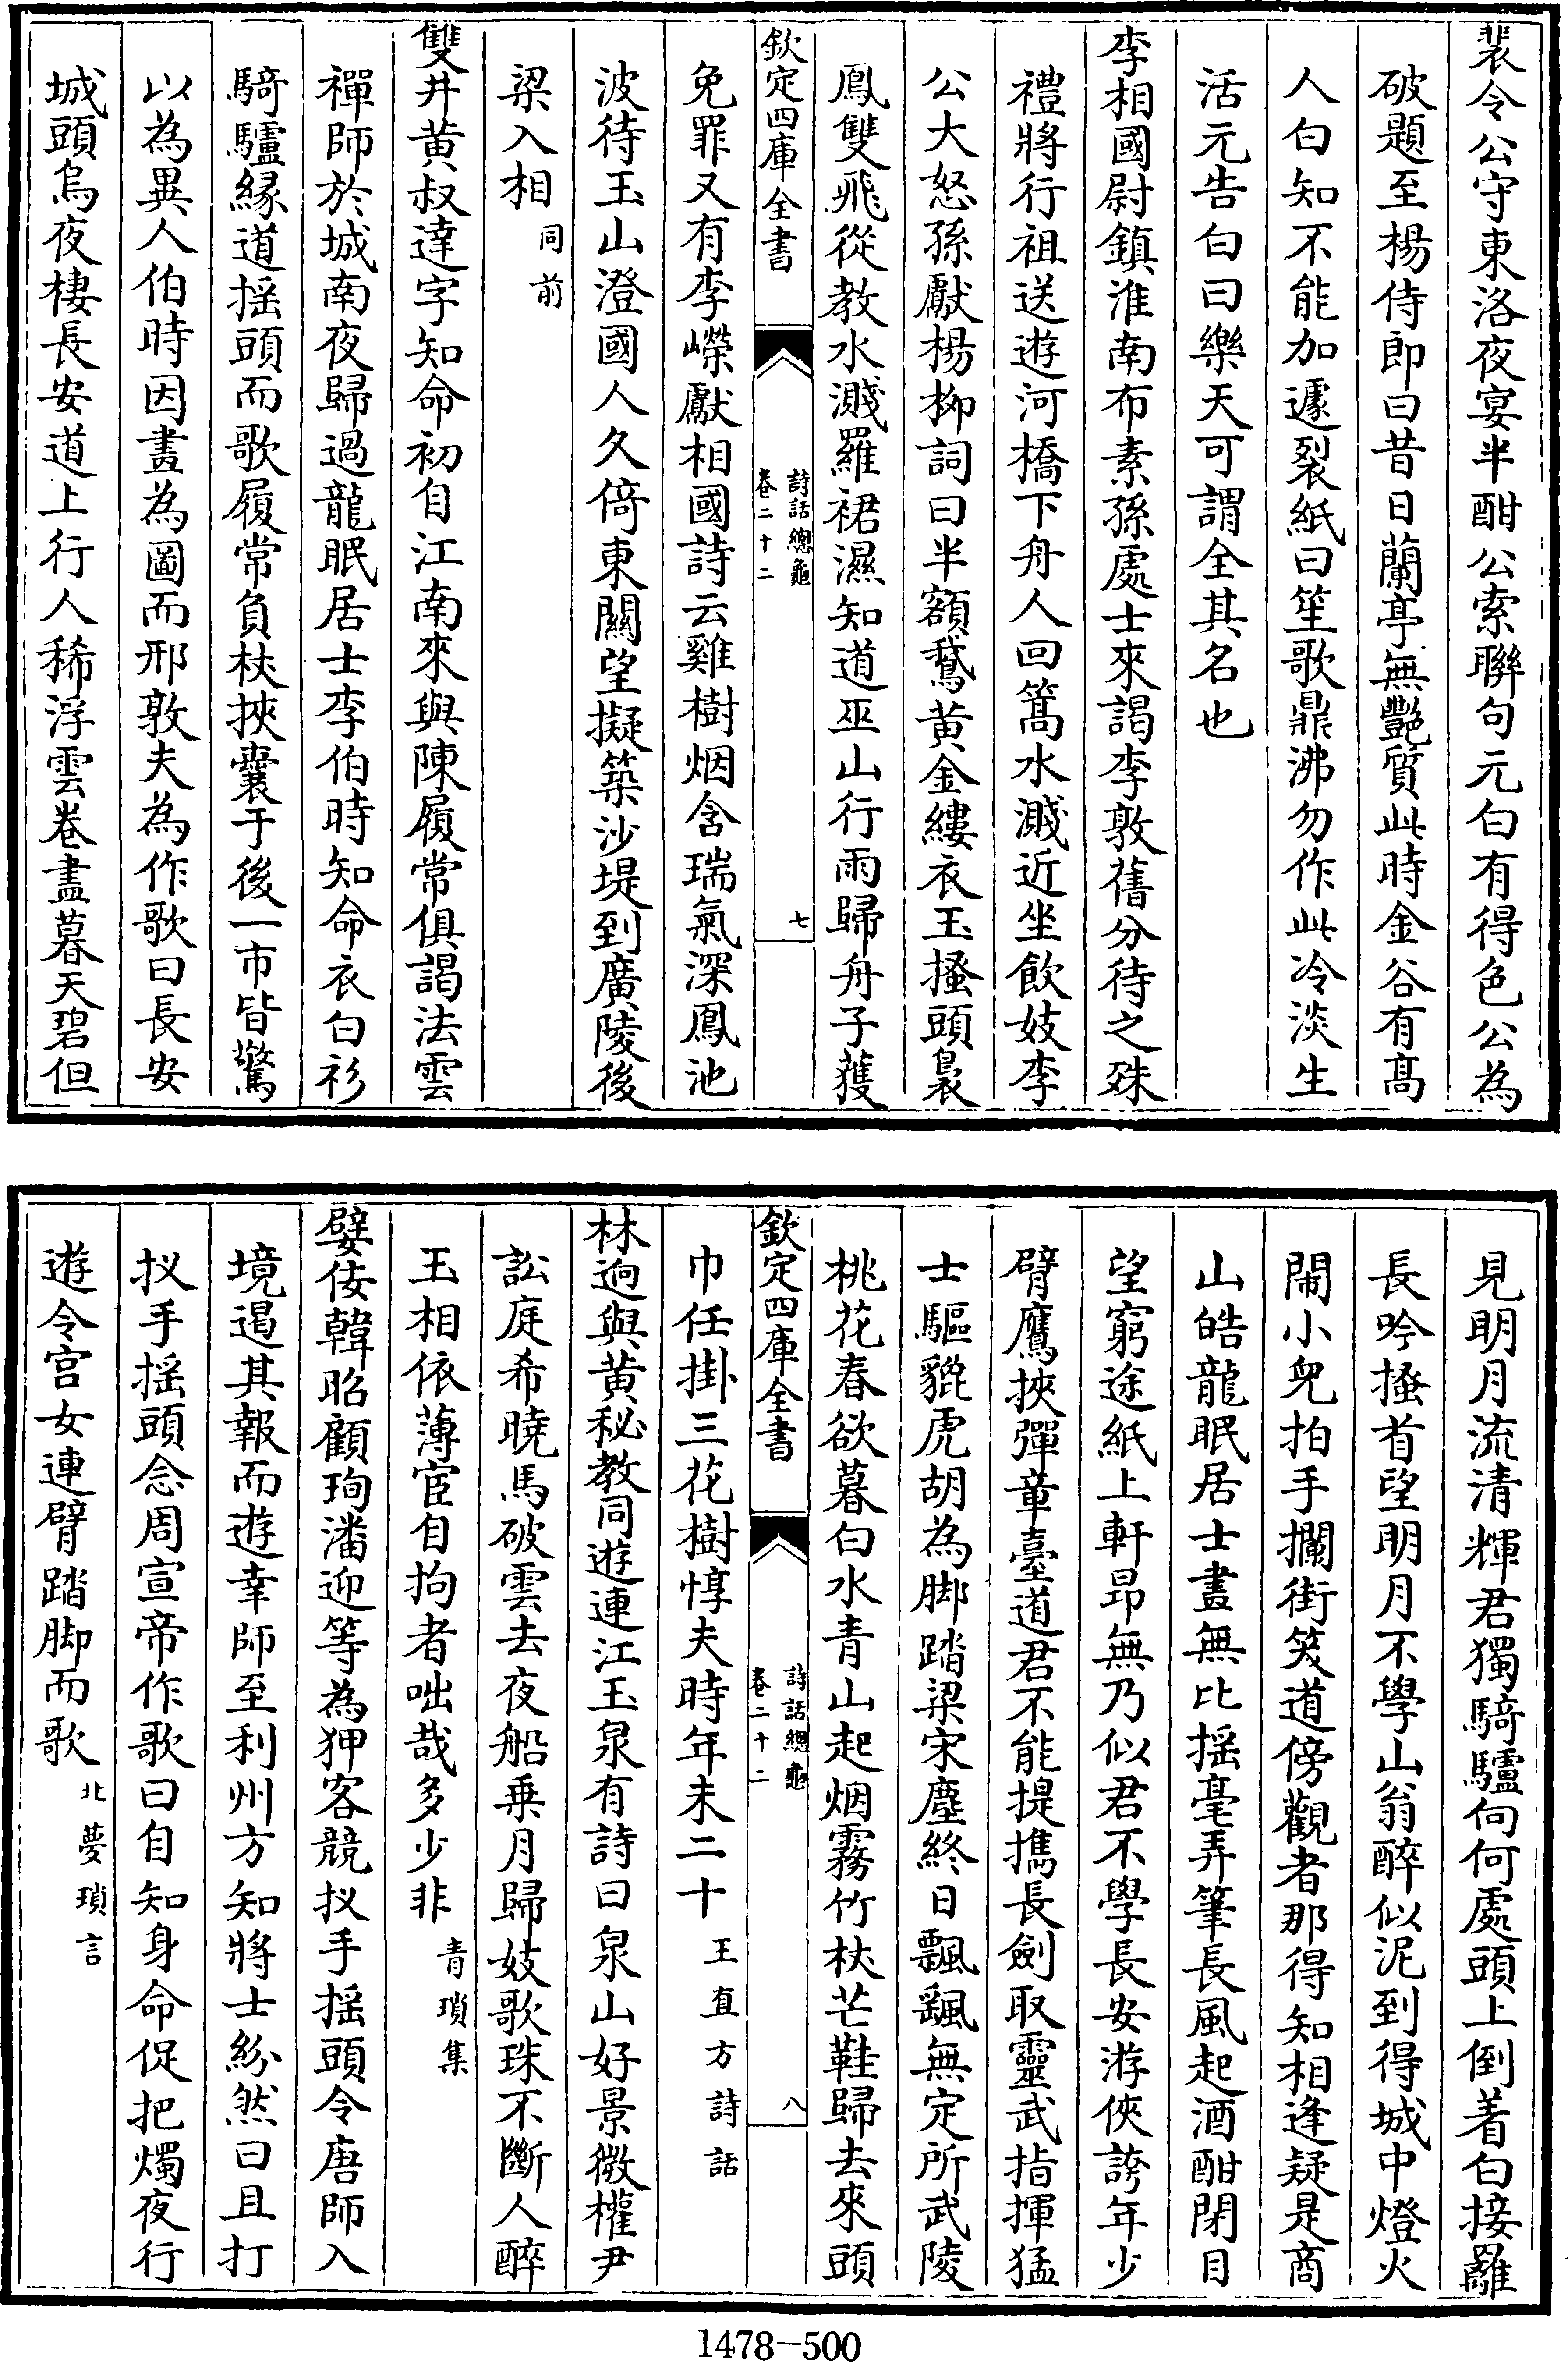 裴令公守東洛夜宴半酣公索聯句元白有得色公為
破題至楊侍郎曰昔日蘭亭無艷質此時金谷有髙
人白知不能加遽裂紙曰笙歌鼎沸勿作此冷淡生
活元告白曰樂天可謂全其名也
李相國尉鎮淮南布素孫處士來謁李敦舊分待之殊
禮將行祖送遊河橋下舟人回篙水濺近坐飲妓李
公大怒孫獻楊柳詞曰半額鵞黄金縷衣玉搔頭裊
鳳雙飛從教水濺羅裙濕知道巫山行雨歸舟子獲
欽定四庫全書
詩話總龜
卷二十二
七
免罪又有李嶸獻相國詩云雞樹烟含瑞氣深鳳池
波待玉山澄國人久倚東關望擬築沙堤到廣陵後
梁入相同前
雙井黄叔達字知命初自江南來與陳履常俱謁法雲
禪師於城南夜歸過龍眠居士李伯時知命衣白衫
騎驢緣道揺頭而歌履常負杖挾囊于後一市皆驚
以為異人伯時因畫為圖而邢敦夫為作歌曰長安
城頭烏夜棲長安道上行人稀浮雲卷盡暮天碧但
見明月流清輝君獨騎驢向何處頭上倒着白接䍦
長吟搔首望明月不學山翁醉似泥到得城中燈火
鬧小兒拍手攔街笑道傍觀者那得知相逢疑是商
山皓龍眠居士畫無比揺毫弄筆長風起酒酣閉目
望窮途紙上軒昂無乃似君不學長安游俠誇年少
臂鷹挾彈章臺道君不能提擕長劍取靈武指揮猛
士驅貔虎胡為脚踏梁宋塵終日飄飄無定所武陵
桃花春欲暮白水青山起烟霧竹杖芒鞋歸去來頭
欽定四庫全書
詩話總龜
卷二十二
八
巾任掛三花樹惇夫時年未二十王直方詩話
林逈與黄秘教同遊連江玉泉有詩曰泉山好景微權尹
訟庭希曉馬破雲去夜船乗月歸妓歌珠不斷人醉
玉相依薄宦自拘者咄哉多少非青瑣集
嬖倿韓昭顧珣潘迎等為狎客競扠手揺頭令唐師入
境遏其報而遊幸師至利州方知將士紛然曰且打
扠手揺頭念周宣帝作歌曰自知身命促把燭夜行
遊令宫女連臂踏脚而歌北夢瑣言
1478—500